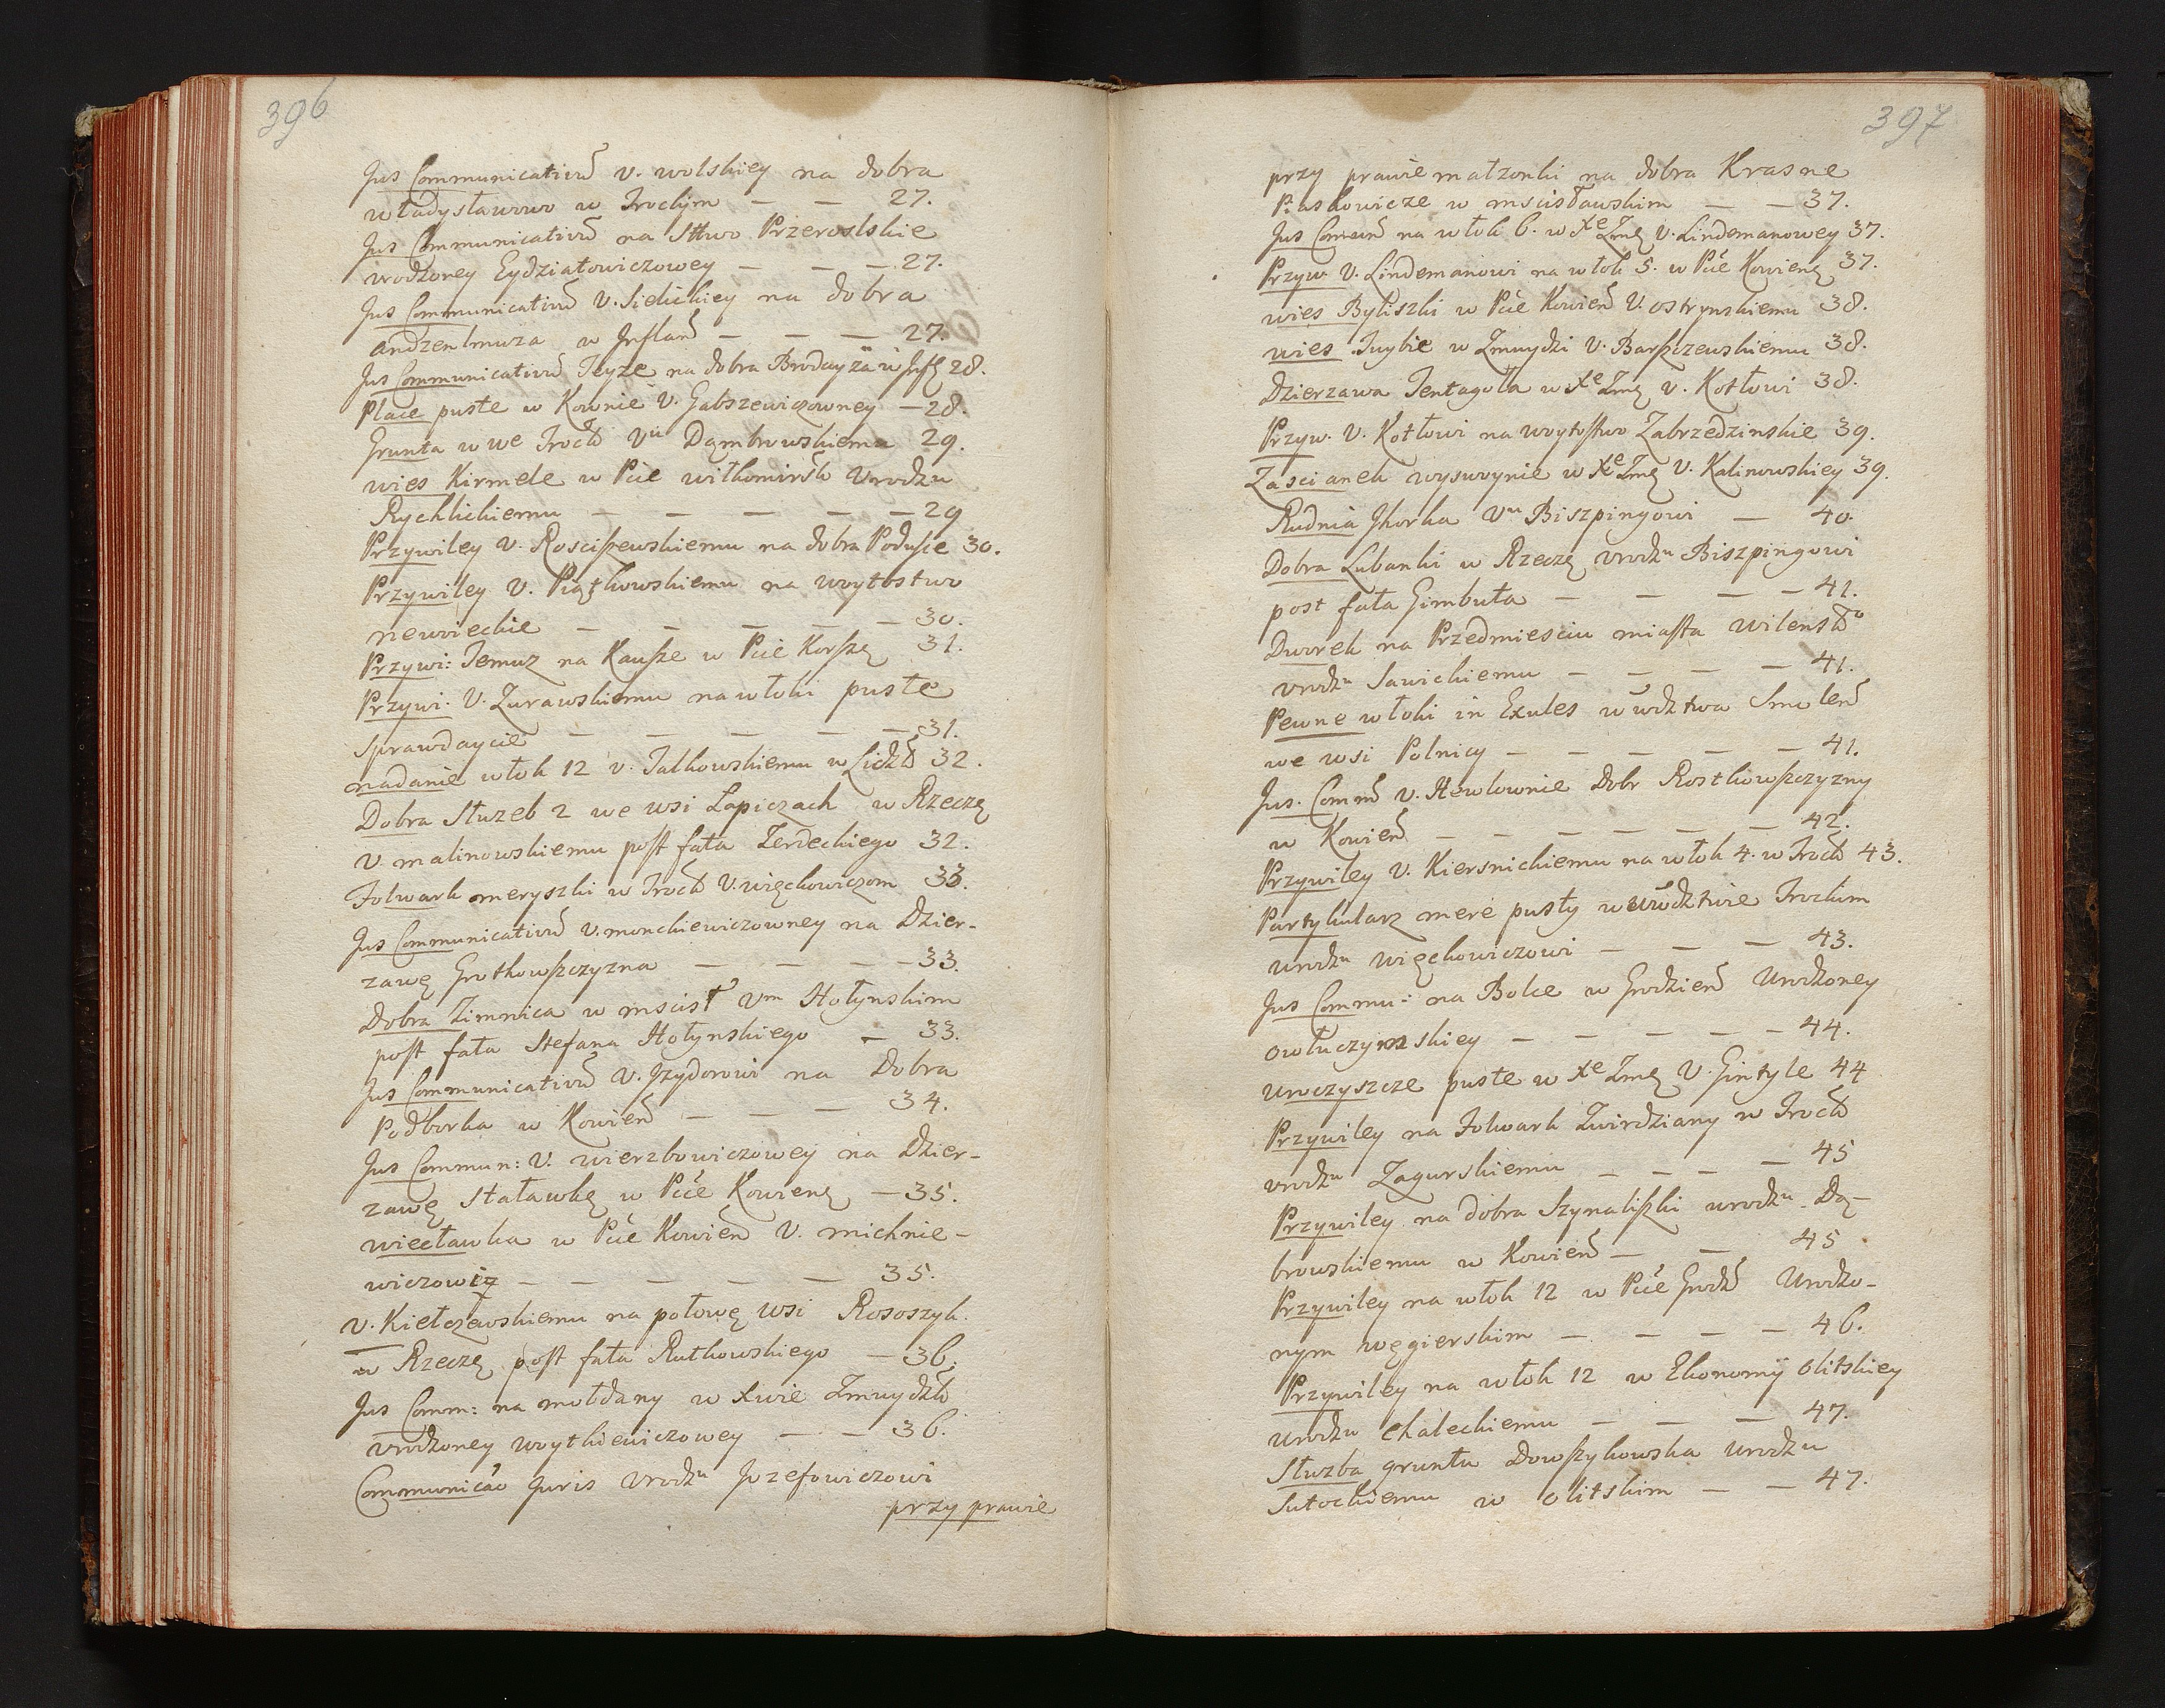 396
Jus Communicativũ v. wolskiey na dobra
władysławowo w Trockim — — 27.
Jus Communicativũ na Sttwo Przeroslskie
vrodzoney Eydziatowiczowey — — — 27.
Jus Communicativũ V. Sielickiey na dobra
andzenlmuza w Inflan̄ — — — 27.
Jus Communicativũ Teyze na dobra Brodayża w Infl: 28.
Place puste w Kownie V. Gabszewiczowney — 28.
Grunta w we Trock Vu Dąmbrowskiemu 29.
wies Kirmele w Pcie wiłkomirsk Vrodzu
Rychlickiemu — — — — — 29
Przywiley V. Rosciszewskiemu na dobra Podusie 30.
Przywiley V. Piątkowskiemu na woytostwo
niewieckie — — — — — 30.
Przywi: Temuz na Kausze w Pcie Korsze 31.
Przywi: V. Zurawskiemu na włoki puste
Sprawdaycie — — — — — 31.
nadanie włok 12 v. Jatkowskiemu w Lidzk 32.
Dobra Służeb 2 we wsi Łapiczach w Rzecze
V malinowskiemu post fata Zerdeckiego 32.
Folwark meryszki w Trock V. więckowiczom 33.
Jus Communicativũ v. monckiewiczowney na Dzier-
zawę Grotkowszczyzna — — — — 33.
Dobra Zimnica w mscisł Vm Hołynskim
post fata Stefana Hołynskiego — 33.
Jus Communicativũ V. Jzydorowi na Dobra
Podborka w Kowien̄ — — — 34.
Jus Commun: V. wierzbowiczowey na Dzier-
zawę Staławkę w Pcie Kowienę — 35.
wiecławka w Pcie Kowien̄ V. michnie-
wiczowiz — — — — — 35.
V. Kiełczewskiemu na połowę wsi Rososzyk.
w Rzeczę post fata Rutkowskiego — 36.
Jus Comm: na mołdany w Xwie Zmuydzk
vrodzoney woytkiewiczowey — — 36.
Communicão Juris Vrodzu Jozefowiczowi
przy prawie
397
przy prawie małzonki na dobra Krasne
Piaskowicze w mscisławskim — — 37.
Jus Comun̄ na włok 6. w Xe Zmę V. Lindemanowey 37.
Przyw. V. Lindemanowi na włok 5. w Pcie Kowienę 37.
wies Byliszki w Pcie Kowien̄ V. ostrynskiemu 38.
wies Tuybie w Zmuydzi V. Barszczewskiemu 38.
Dzierzawa Tentagoła w Xe Zmę v. Kotłowi 38.
Przyw. V. Kotłowi na woytostwo Zabrzedzinskie 39.
Zascianek wyswynie w Xe Zmę V. Kalinowskiey 39.
Rudnia Jhorka Vu Biszpingowi — 40.
Dobra Lubanki w Rzeczę vrodzu Biszpingowi
post fata Gimbuta — — — — 41.
Dworek na Przedmiesciu miasta wilensko
vrodzu Sawickiemu — — — — 41.
Pewne włoki in Exules w wdztwa Smolen̄
we wsi Polnicy — — — — — 41.
Jus. Comm̄ v. Hewlownie Dobr Rostkowszczyzny
w Kowien̄ — — — — — — 42.
Przywiley V. Kiersnickiemu na włok 4. w Trock 43.
Partykularz mere pusty w wdztwie Trockim
urodzu więckowiczowi — — — 43.
Jus Commu: na Bolce w Grodzien̄ Urodzoney
owłuczymskiey — — — — — 44.
uroczyszcze puste w Xe Zmę V. Gintyle 44
Przywiley na Folwark Zwirdziany w Trock
vrodzu Zagurskiemu — — — — 45
Przywiley na dobra Szynaliszki urodzu Dą-
browskiemu w Kowien̄ — — 45
Przywiley na włok 12 w Pcie Grodz Urodzo-
nym węgierskim — — — — 46.
Przywiley na włok 12 w Ekonomÿ Olitskiey
urodzu chaleckiemu — — — 47.
Służba gruntu Dowszykowska urodzu
Sutockiemu w olitskim — — 47.